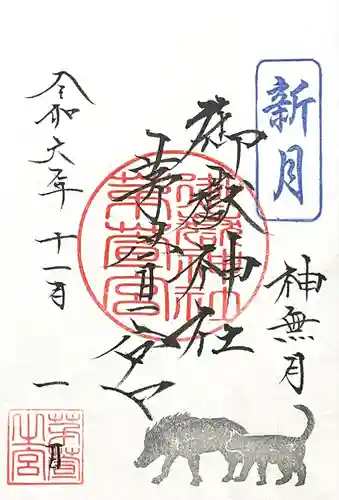 新月
神無月
御嶽神社
茅萱宮
令和六年十一月一日